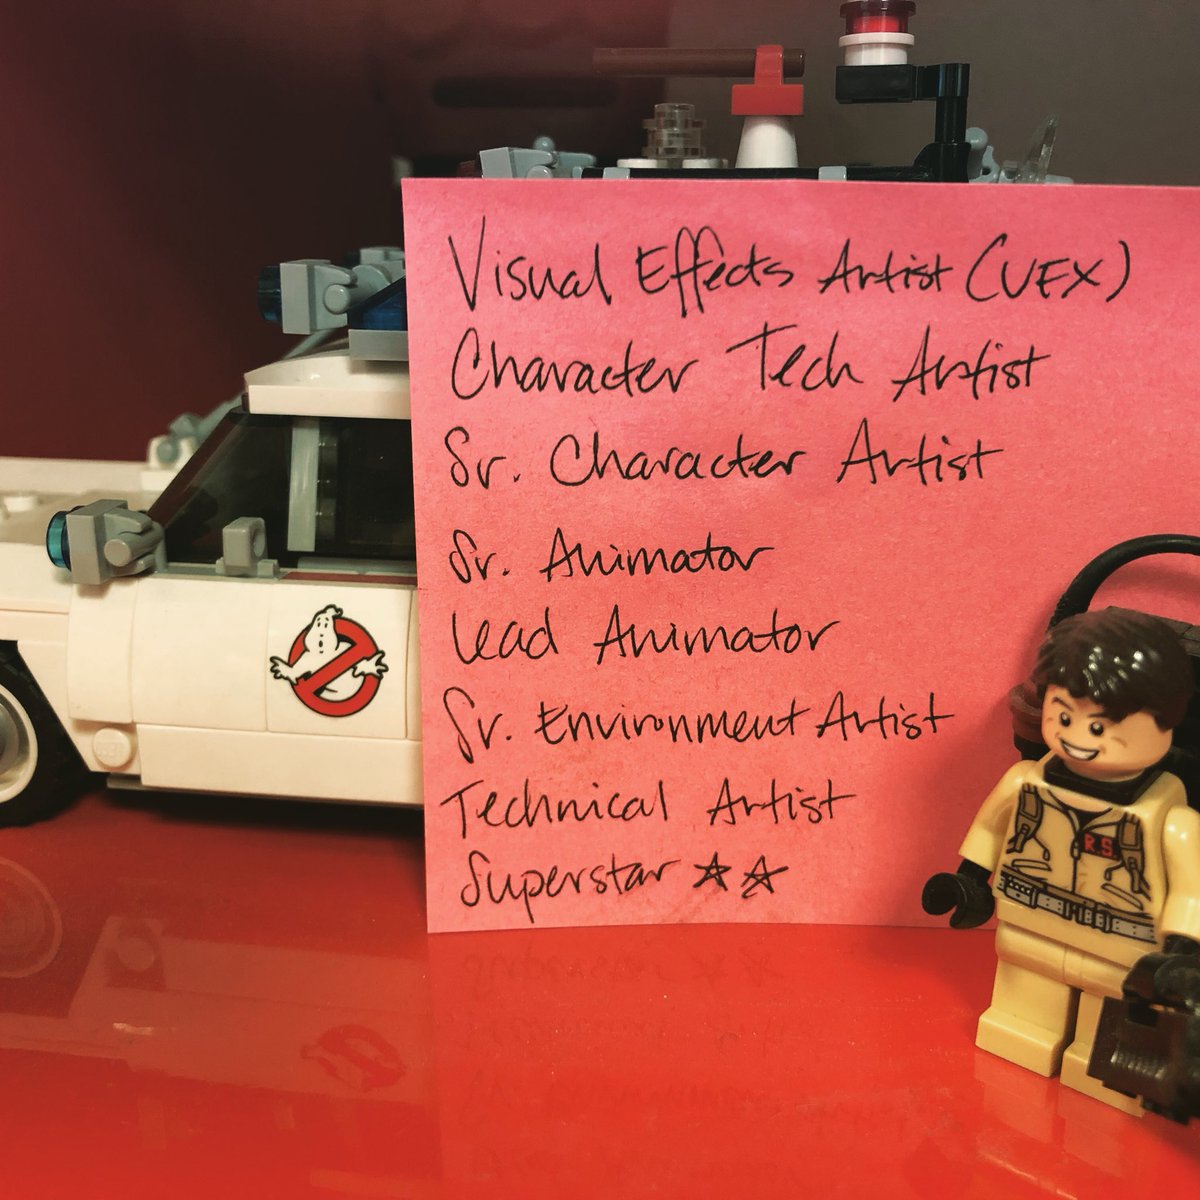 Visual Effects Artist (UEX)
Character Tech Artist
Sr. Character Artist
Sr. Animator
Lead Animator
Sr. Environment Artist
Technical Artist
Superstar ★★
R.S.